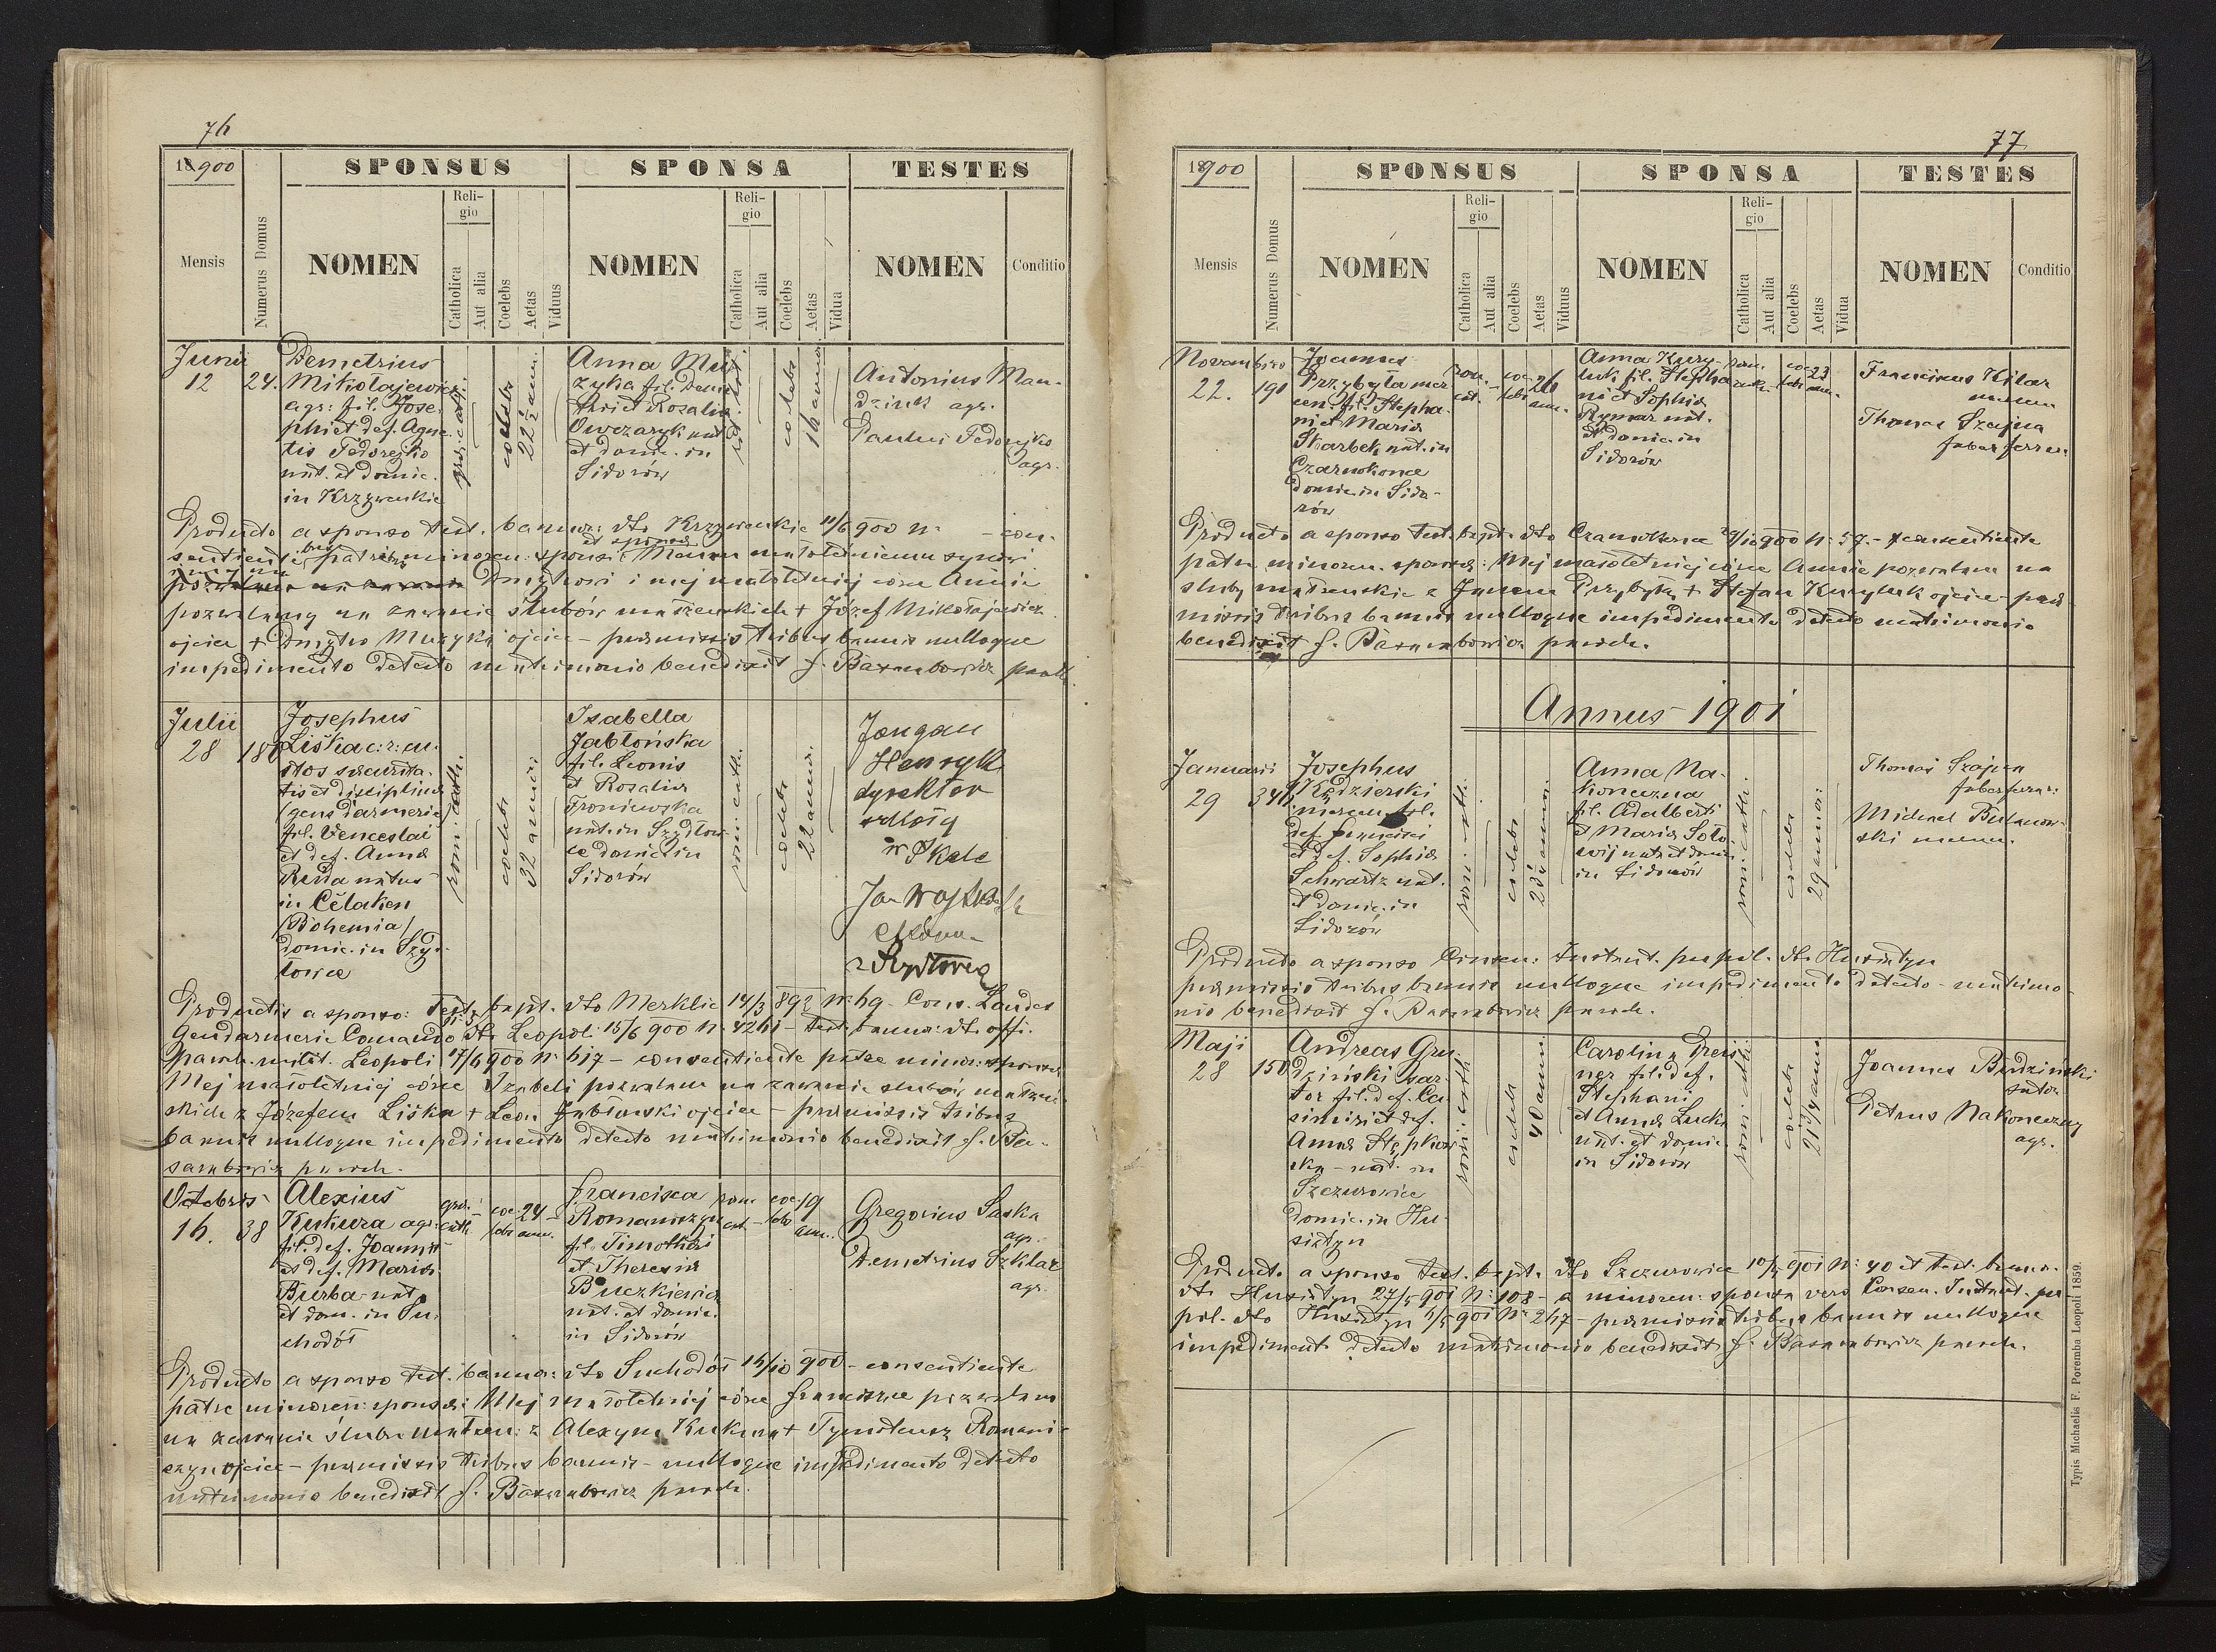 76
1900
SPONSUS
SPONSA
TESTES
Mensis
Numerus Domus
NOMEN
Religio
Catholica
Aut alia
Coelebs
Aetas
Viduus
NOMEN
Religio
Catholica
Aut alia
Coelebs
Aetas
Vidua
NOMEN
Conditio
Junii
12
24.
Demetrius
Mikołajewicz
agr: fil. Jose-
phi et def. Agne-
tis Fedorejko
nat. et domic.
in Krzyweńkie
gr. cath.
coelebs
22 ann.
Anna Mu-
zyka fil. Deme-
trii et Rosalia
Owczaryk nat.
et domic. in
Sidorów
coelebs
16 annor.
Antonius Man-
dziuk agr.
Paulus Fedorejko
agr.
Producto a sponso test. bannor: dto Krzyweńkie 11/6 900 N: - con-
sentientibus patribus minoren: sponsi et sponsae: memu małoletniemu synowi
Dmytrowi i mej małoletniej córce Annie
pozwalamy na zawarcie ślubów małżeńskich + Józef Mikołajewicz
ojciec + Dmytro Muzyka ojciec - praemissis tribus bannis nulloque
impedimento detecto matrimonio benedixit J. Barnabowicz paroch.
Julii
28
180
Josephus
Liška c: r: cu-
stos securita-
tis et disciplinae
(gens d'armerie)
fil. Venceslai
et def. Annae
Renda natus
in Čelaken
/Bohemia/
domic. in Szy-
dłowce
rom: cath.
coelebs
32 annor:
Isabella
Jabłońska
fil. Leonis
et Rosaliae
Froniewska
nat. in Szydłow-
ce domic. in
Sidorów
rom: cath.
coelebs
22 annor.
Jangan
Henryk
dyrektor
szkoły
w Skale
Jan
z Szydłowce
Productis a sponso: Test. bapt. dto Merklic 14/3 892 N: 69 - Cons. Landes
Gendarmerie Comando dto Leopol: 15/6 900 N: 4261 - test. bannor: dto offi.
paroch. milit. Leopoli 17/6 900 N: 617 - consentiente patre minor: sponsae
Mej małoletniej córce Izabeli pozwalam na zawarcie ślubów małżeń-
skich z Józefem Liška + Leon Jabłoński ojciec - praemissis tribus
bannis nulloque impedimento detecto matrimonio benedixit J. Ba-
rnabowicz paroch.
Octobris
16.
38
Alexius
Kukura agr.
fil. def. Joannis
et def. Maria
Burba nat.
et dom. in Su-
chodół
gr. cath.
coelebs
24 ann.
Francisca
Romaniszyn
fil. Timothei
et Theresiae
Buczkiewicz
nat. et domic.
in Sidorów
rom. cat.
coelebs
19 ann.
Gregorius Saska
agr.
Demetrius Szklar
agr.
Producto a sponso test. bannor: dto Suchodół 16/10 900 - consentiente
patre minoren: sponsae: Mej małoletniej córce Franciszce pozwalam
na zawarcie ślubu małżeń: z Alexym Kukura + Tymoteusz Romani-
szyn ojciec - praemissis tribus bannis - nulloque impedimento detecto
matrimonio benedixit J. Barnabowicz paroch.
77
1900
SPONSUS
SPONSA
TESTES
Mensis
Numerus Domus
NOMEN
Religio
Catholica
Aut alia
Coelebs
Aetas
Viduus
NOMEN
Religio
Catholica
Aut alia
Coelebs
Aetas
Vidua
NOMEN
Conditio
Novembris
22.
190
Joannes
Przybyła mer-
cen. fil. Stepha-
ni et Maria
Skarbek nat. in
Czarnokonce
domic. in Sido-
rów
rom. cat.
coelebs
26 ann.
Anna Kury-
luk fil. Stepha-
ni et Sophia
Rymar nat.
et domic. in
Sidorów
rom. cath.
coelebs
23 ann.
Franciscus Kilar
Thomas Szajna
faber ferrar.
Producto a sponso test. bapt. dto Czarnokonce 900 N: 57. - consentiente
patre minoren. sponsae: Mej małoletniej córce Annie pozwalam na
śluby małżeńskie z Janem Przybyłą + Stefan Kuryluk ojciec - prae-
missis tribus bannis nulloque impedimento detecto matrimonio
benedixit J. Barnabowicz paroch.
Annus 1901
Januarii
29
341
Josephus
Kędzierski
mercen. fil.
def. Francisci
et def. Sophia
Schwartz nat.
et domic. in
Sidorów
rom. cath.
coelebs
annor.
Anna Na-
koneczna
fil. Adalberti
et Maria Soło-
wij nata et domic.
in Sidorów
rom. cath.
coelebs
29 annor:
Thomas Szajna
faber ferrar:
Michael
Producto a sponso Consen: Instant. pupil. dto Husiatyn
praemissis tribus bannis nulloque impedimento detecto - matrimo-
nio benedixit J. Barnabowicz paroch.
Maji
28
150
Andreas Gru-
dziński sar-
tor fil. def. Ca-
simiri et def.
Anna Stępkow-
ska - nat. in
Szczurowice
domic. in Hu-
siatyn
rom: cath:
coelebs
40 annor.
Carolina Preis-
ner fil. def.
Stephani
et Anna Lucki
nat. et domic.
in Sidorów
rom: cath:
coelebs
Joannes Budziński
sutor
Petrus Nakoneczny
agr.
Producto a sponso test. bapt. dto Szczurowice 901 N: 40 et test. bannor.
dto Husiatyn 27/5 901 N: 108 - a minoren: sponsa vero Consen. Instant. pu-
pil. dto Husiatyn 901 N: 267 - praemissis tribus bannis nulloque
impedimento detecto matrimonio benedixit J. Barnabowicz paroch.
Typis Michaelis F. Poremba Leopoli 1859.